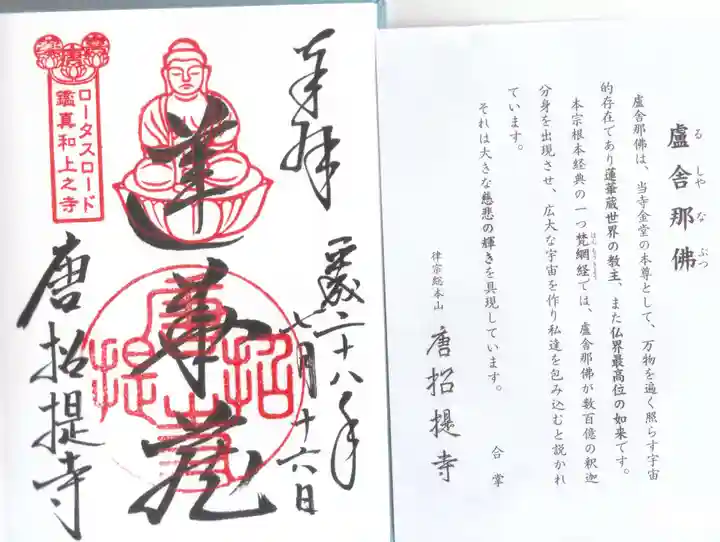 奉拝
平成二十八年
七月十六日
蓮華蔵
唐招提寺
ロータスロード
鑑真和上之寺
る しや な ぶつ
盧舎那佛
盧舎那佛は、当寺金堂の本尊として、万物を遍く照らす宇宙
的存在であり蓮華蔵世界の教主、また仏界最高位の如来です。
本宗根本経典の一つ梵網経では、盧舎那佛が数百億の釈迦
分身を出現させ、広大な宇宙を作り私達を包み込むと説かれ
ています。
それは大きな慈悲の輝きを具現しています。
合掌
律宗総本山 唐招提寺